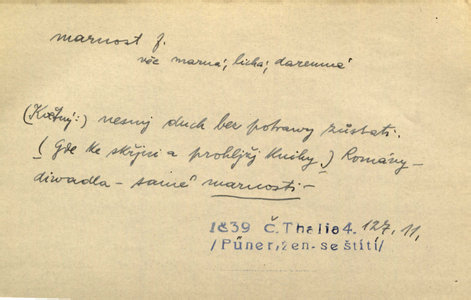 marnost f.
věc marná; lichá; daremná
(Květný:) nesmj duch bez potrawy zůstati.
(Gde ke skřjni a prohljžj knihy.) Romány –
diwadla – samé marnosti –
1839 Č.Thalie4. 127, 11,
/Půner,žen.se štítí/